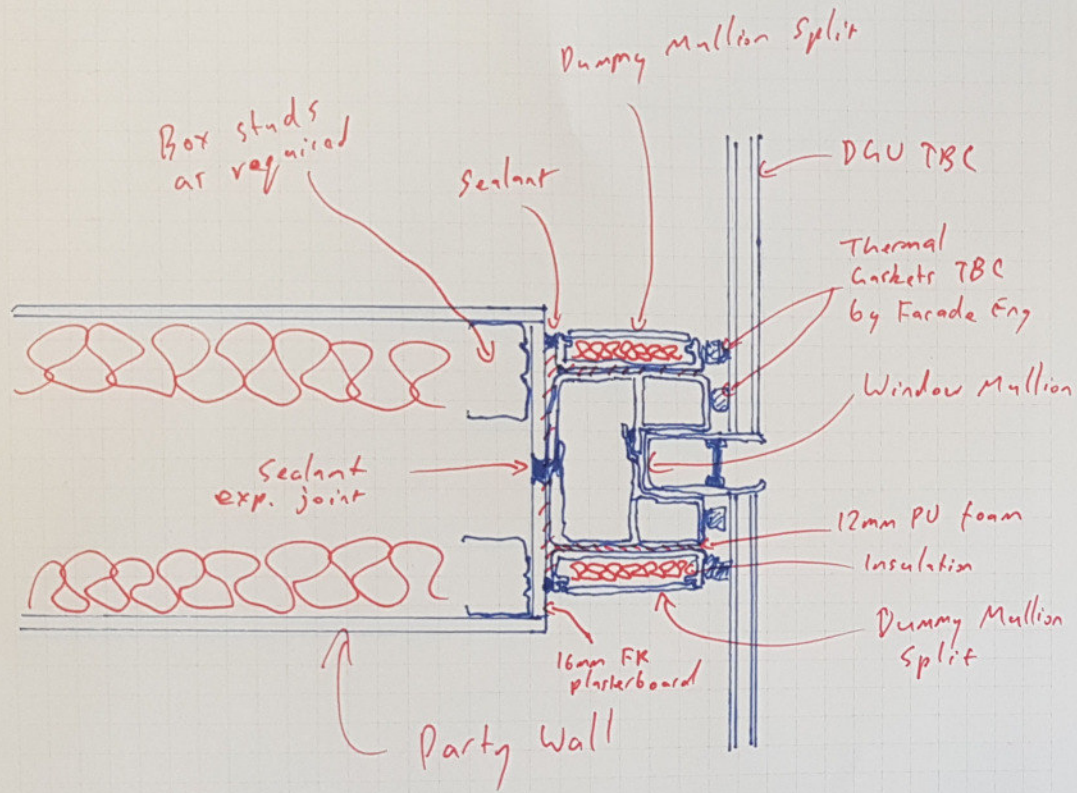 Dummy Mullion Split
Box studs
as required
Sealant
DGU TBC
Thermal
Gaskets TBC
by Facade Eng
Window Mullion
Sealant
exp. joint
12mm PU foam
Insulation
Dummy Mullion
Split
16mm FR
plasterboard
Party Wall